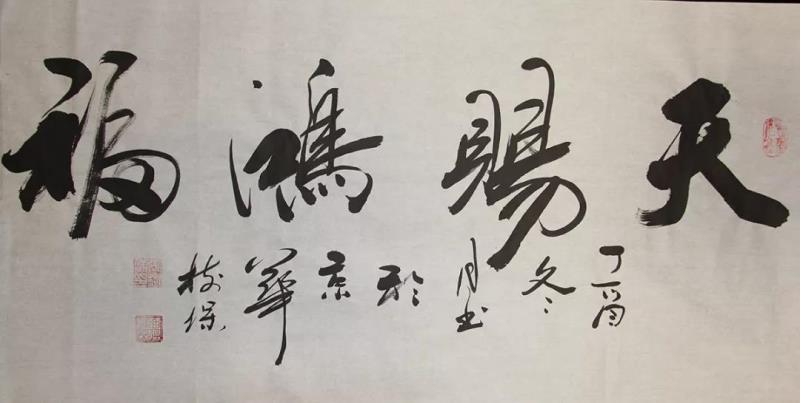 天賜鴻福
丁酉冬月书於京華树保